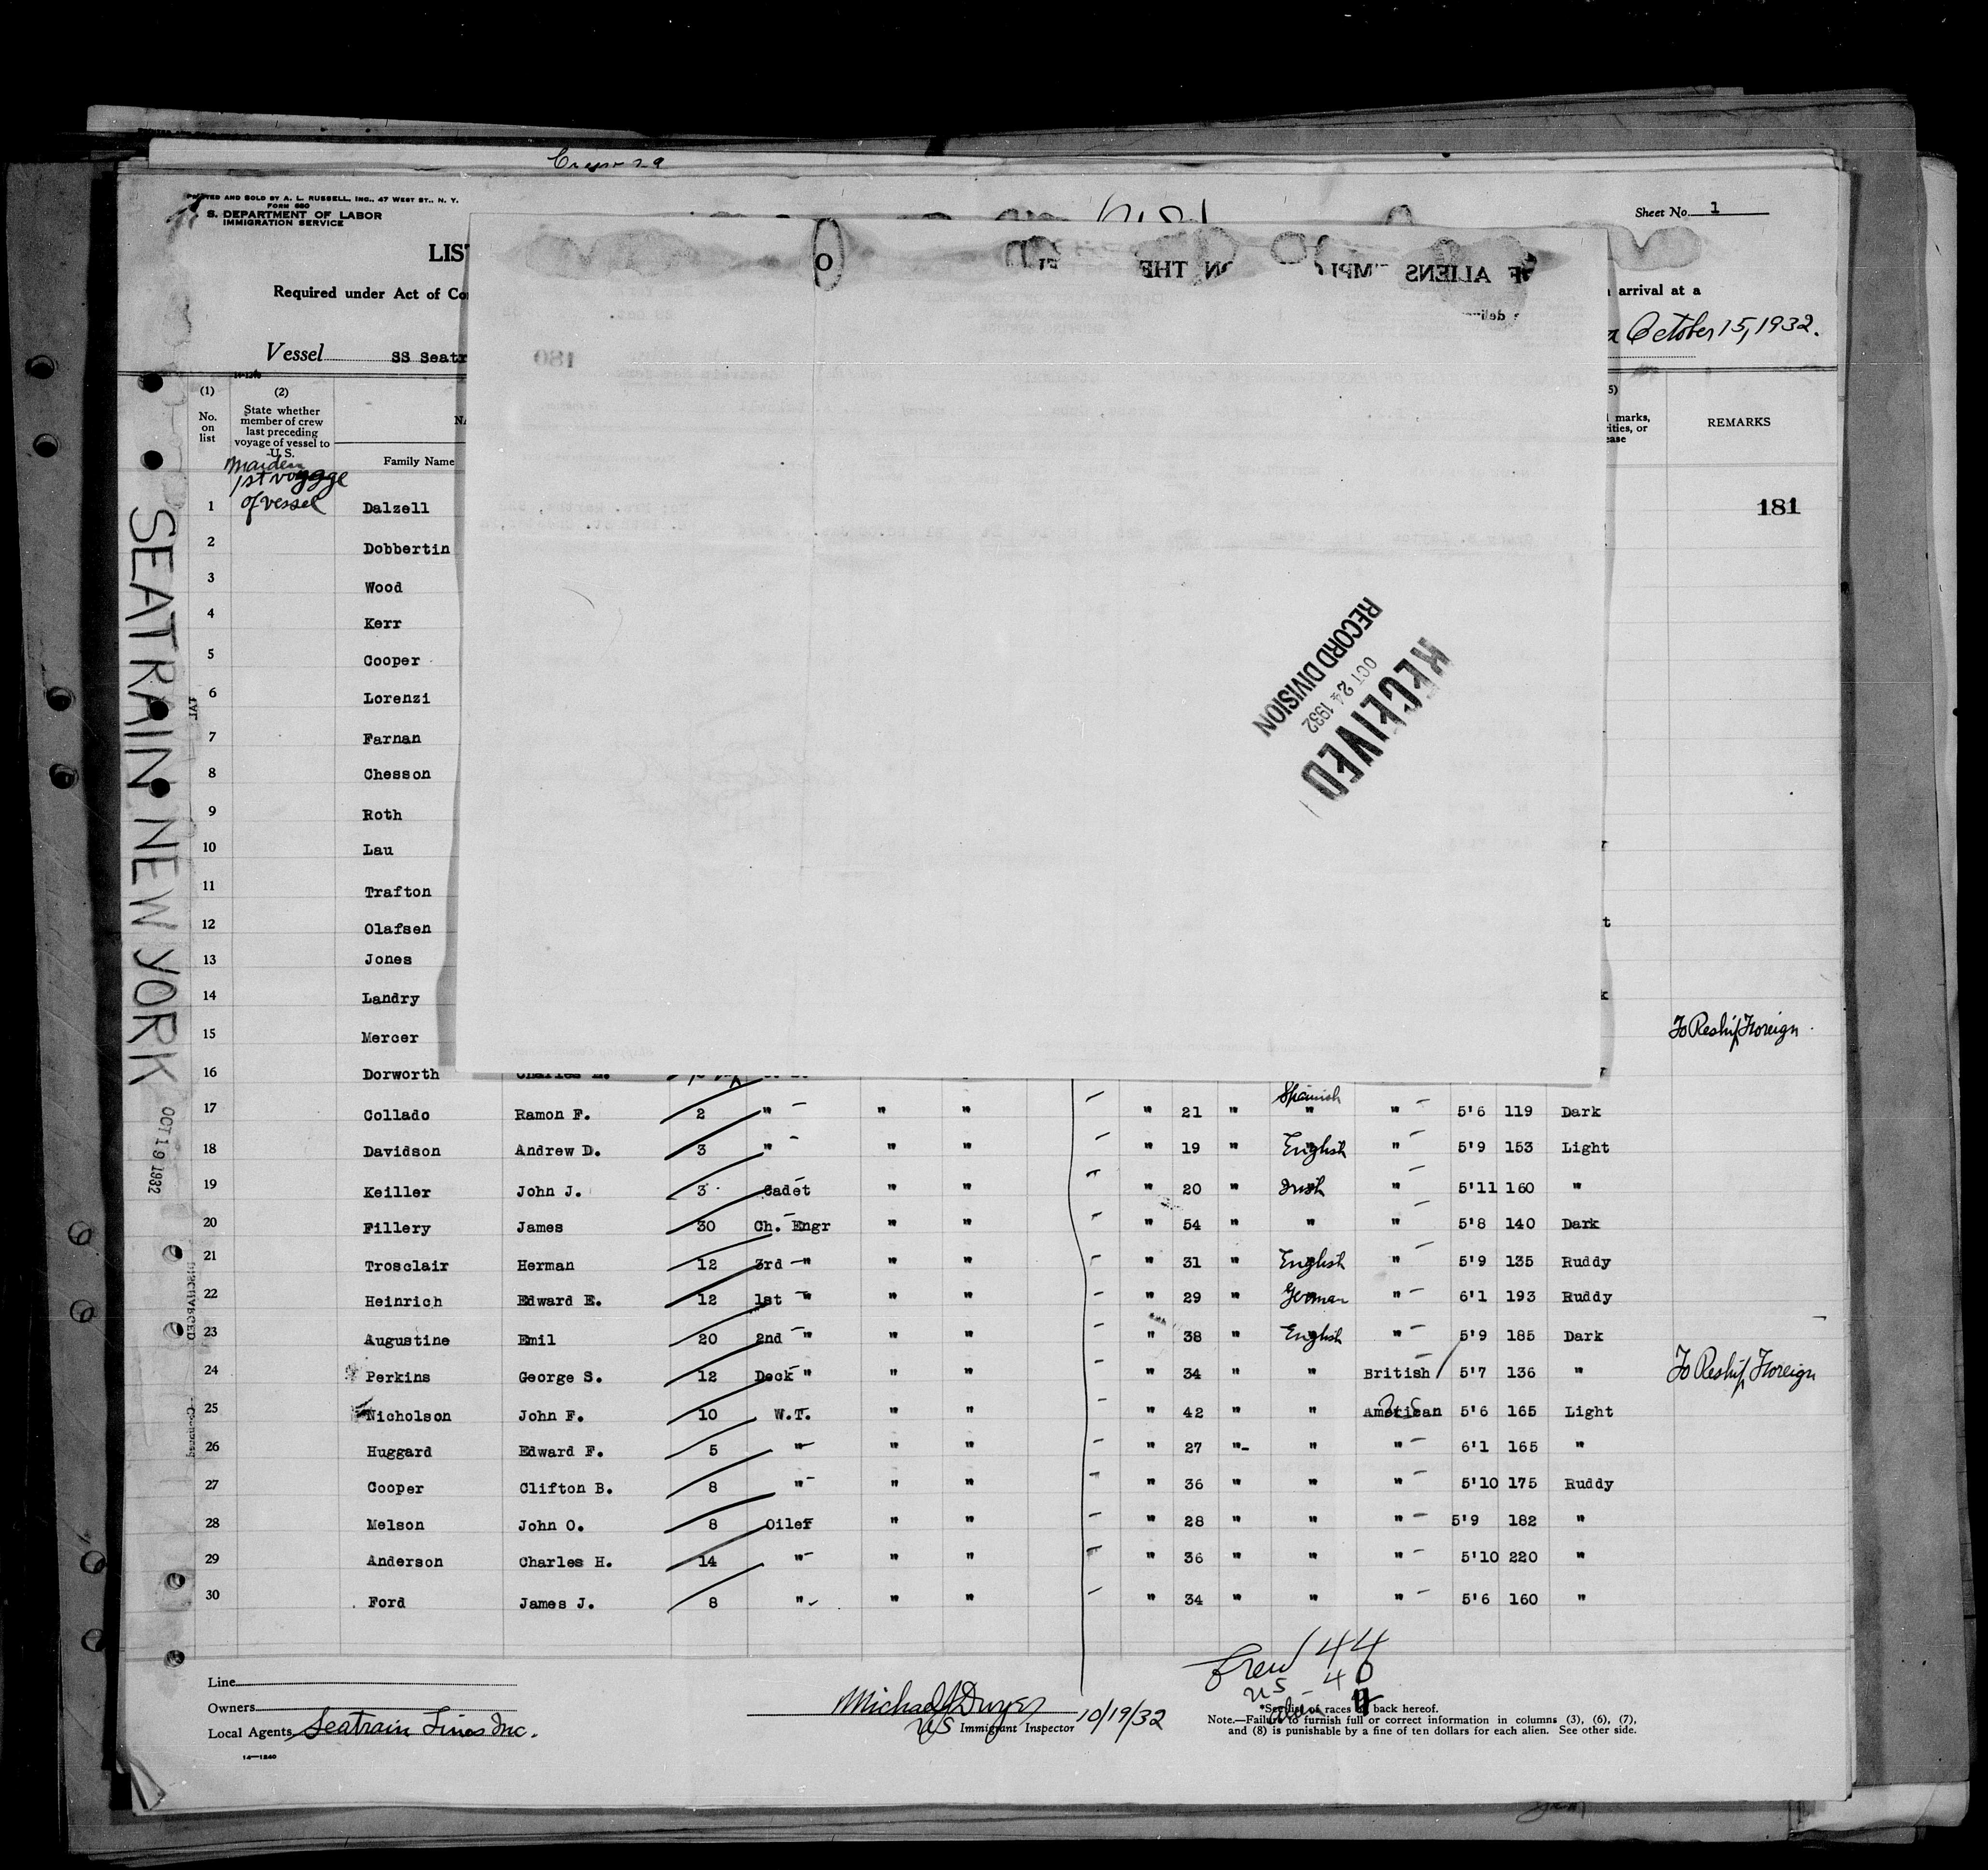 PRINTED AND SOLD BY A. L. RUSSELL, INC., 47 WEST ST., N. Y.
FORM 680
S. DEPARTMENT OF LABOR
IMMIGRATION SERVICE
Sheet No. 1
LIST
OF ALIENS EMPL ON THE
Required under Act of Co
arrival at a
October 15, 1932.
Vessel SS Seatr
180
(1) (2)
No. on list
State whether member of crew last preceding voyage of vessel to U. S.
Family Name
REMARKS
Maiden
1st voyage
of vessel
181
1 Dalzell
2 Dobbertin
3 Wood
4 Kerr
5 Cooper
6 Lorenzi
7 Farnan
8 Chesson
9 Roth
10 Lau
11 Trafton
12 Olafsen
13 Jones
14 Landry
15 Mercer To Reship Foreign
16 Dorworth Charles E.
17 Collado Ramon F. 2 " " " " 21 " Spanish " " 5'6 119 Dark
18 Davidson Andrew D. 3 " " " " 19 " English " 5'9 153 Light
19 Keiller John J. 3 Cadet " " " 20 " Irish " 5'11 160 "
20 Fillery James 30 Ch. Engr " " " 54 " " " 5'8 140 Dark
21 Trosclair Herman 12 3rd " " " " 31 " English " 5'9 135 Ruddy
22 Heinrich Edward E. 12 1st " " " " 29 " German " 6'1 193 Ruddy
23 Augustine Emil 20 2nd " " " " 38 " English " 5'9 185 Dark
24 Perkins George S. 12 Deck " " " " 34 " " British 5'7 136 " To Reship Foreign
25 Nicholson John F. 10 W.T. " " " 42 " " American 5'6 165 Light
26 Huggard Edward F. 5 " " " " 27 " " " 6'1 165 "
27 Cooper Clifton B. 8 " " " " 36 " " " 5'10 175 Ruddy
28 Melson John O. 8 Oiler " " " 28 " " " 5'9 182 "
29 Anderson Charles H. 14 " " " " 36 " " " 5'10 220 "
30 Ford James J. 8 " " " " 34 " " " 5'6 160 "
RECEIVED
OCT 24 1932
RECORD DIVISION
SEATRAIN NEW YORK
OCT 19 1932
DISCHARGED
Crew 44
US 40
Line
Owners
Local Agents Seatrain Lines Inc.
14—1240
Michael J Dwyer
US Immigrant Inspector 10/19/32
*See list of races on back hereof.
Note.—Failure to furnish full or correct information in columns (3), (6), (7),
and (8) is punishable by a fine of ten dollars for each alien. See other side.